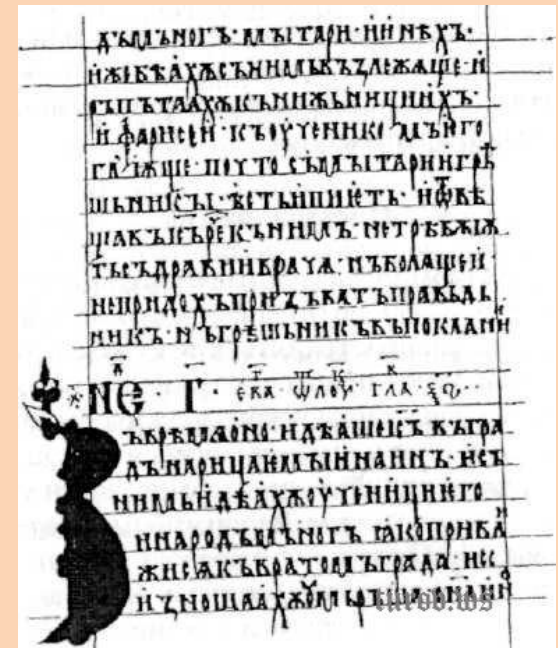 дъмъногъ· мꙑтари· и инѣхъ·
ижебѣахѫсънимьвъзлежѧще· и
ръпътаахѫкънижьнициихъ·
и фарисеи· къоученикомъѥго
гл҃ѭще· почтосъмꙑтариигрѣ
шьникꙑ· ѣстьипиѥть· иѿвѣ
щавъіс҃ърече къ нимъ· нетрѣбѹѭ
тьсъдравииврача· нъболѧщеи·
непридохъпризъватъправьдь
никъ· нъгрѣшьникъвъпокаани
НЄ· Г҃· ѿ лоу гла
ъврѣмѧоно· идѣашеіс҃ъвъгра
дънарицаемꙑинаинъ· исъ
нимьидѣахѫоученициѥго
инародъмъногъ ꙗкоприбли
жисѧкъвратомъграда· исе
изношаахѫ
turov.ws